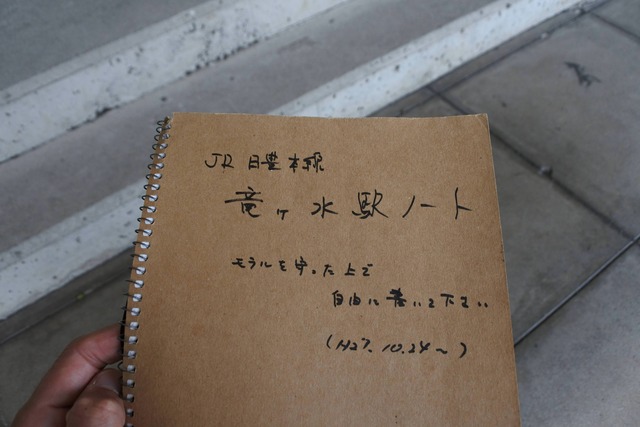 JR 日豊本線
竜ヶ水駅ノート
モラルを守った上で
自由に書いて下さい
(H27.10.24~)